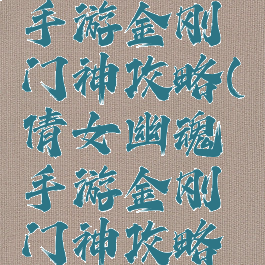 手游金刚
门神攻略(
倩女幽魂
手游金刚
门神攻略